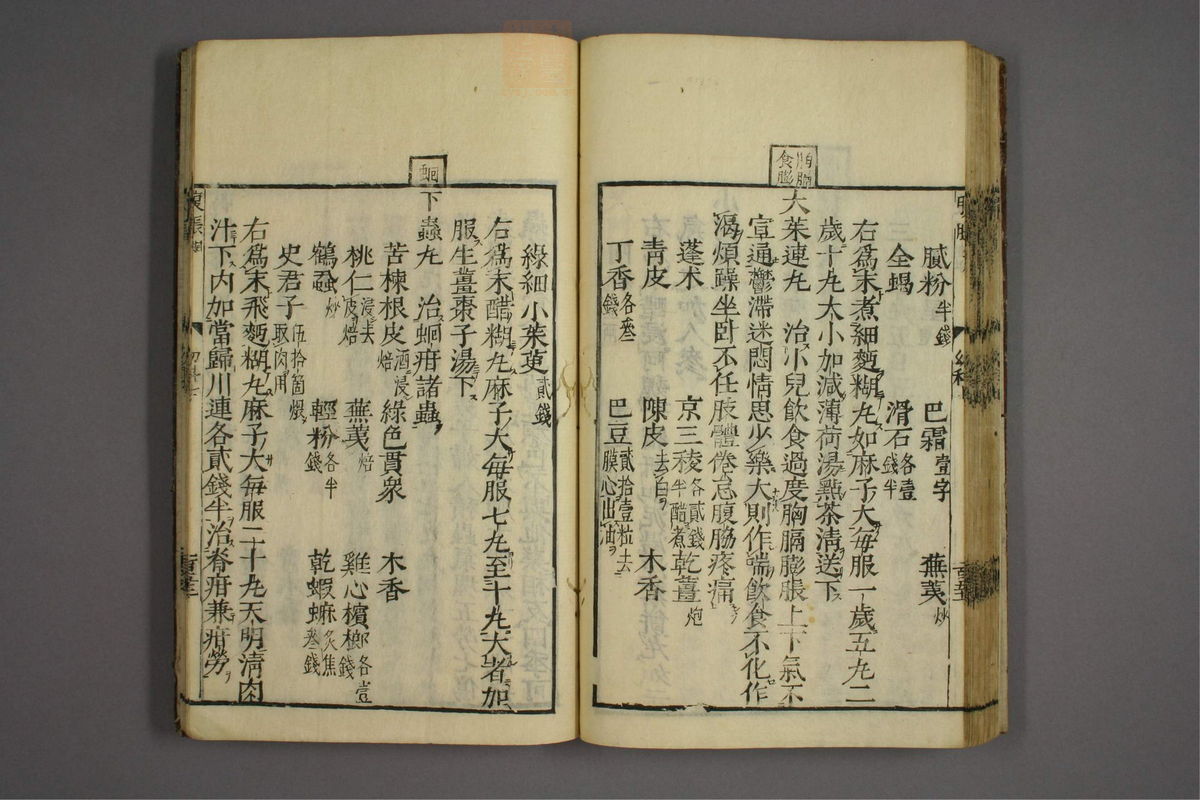 胸膈
食膨
膩粉半錢 巴霜壹字 蕪荑炒
全蝎 滑石各壹錢半
右爲末煮細麪糊丸如麻子大每服一歲五丸二
歲十丸大小加減薄荷湯㸃茶清送下
大茱連丸 治小兒飲食過度胸膈膨脹上下氣不
宣通鬱滯迷悶情思少樂大則作喘飲食不化作
渴煩躁坐卧不任肢體倦怠腹脇疼痛
蓬术 京三稜各貳錢半醋煮 乾薑炮
青皮 陳皮去白 木香
丁香各叁錢 巴豆貳拾壹粒去膜心出油
綠細小茱萸貳錢
右爲末醋糊丸麻子大每服七丸至十丸大者加
服生薑棗子湯下
蛔
下蟲丸 治蛔疳諸蟲
苦楝根皮酒浸焙 綠色貫衆 木香
桃仁浸去皮焙 蕪荑焙 雞心檳榔各壹錢
鶴虱炒 輕粉各半錢 乾蝦蟇炙焦叁錢
史君子伍拾箇煨取肉用
右爲末飛麪糊丸麻子大每服二十丸天明清肉
汁下内加當歸川連各貳錢半治脊疳兼疳勞